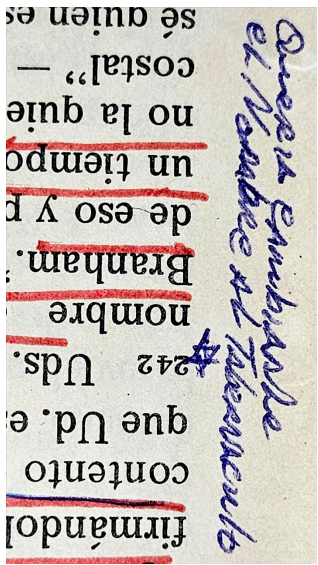 firmándol
contento
que Ud. e
242 Uds.
nombre
Branham."
de eso y p
un tiempo
no la quie
costal" —
sé quien es
Queria Cambiarle
el Nombre al Tabernaculo